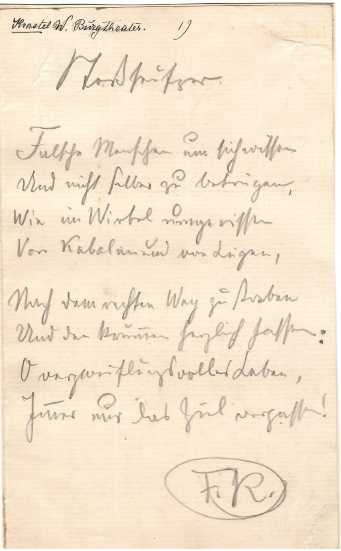 Krastel W. Burgtheater. 1)
Stoßseufzer.
Falsche Menschen um sich wissen
Und nicht selber zu betrügen,
Wie im Wirbel umgerissen
Von Kabalen und von Lügen,
Nach dem rechten Weg zu streben
Und den krummen herzlich hassen:
O verzweiflungsvolles Leben,
Immer nur das Ziel verpassen!
F. K.